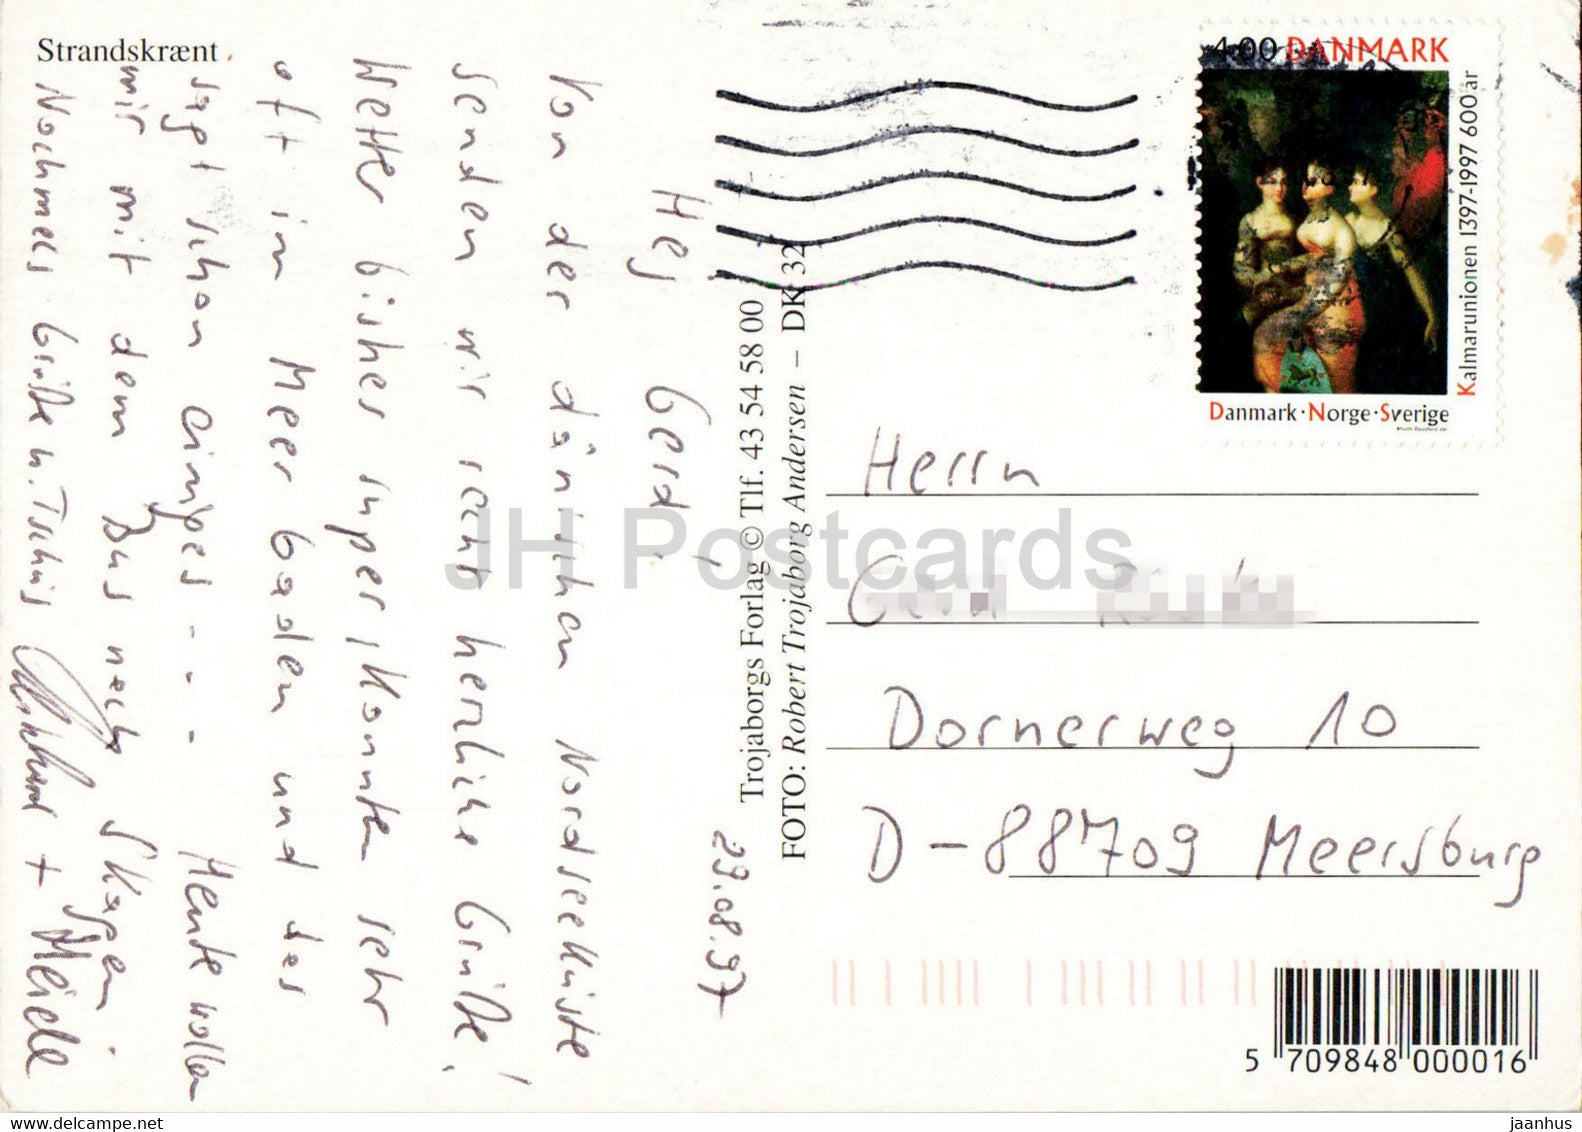 Strandskrænt
29.08.97
Hej Gerd,
Von der dänischen Nordseeküste
senden wir recht herzliche Grüße!
Wetter bisher super, konnten sehr
oft im Meer baden und das
sagt schon einiges - - - Heute wollen
wir mit dem Bus nach Skagen.
Nochmals Grüße u. Tschüs
+ Heide
Trojaborgs Forlag © Tlf. 43 54 58 00
FOTO: Robert Trojaborg Andersen – DK 32
4.00 DANMARK
Kalmarunionen 1397-1997 600 år
Danmark · Norge · Sverige
Herrn
Dornerweg 10
D-88709 Meersburg
5 709848 000016
JH Postcards
www.delcampe.net
jaanhus